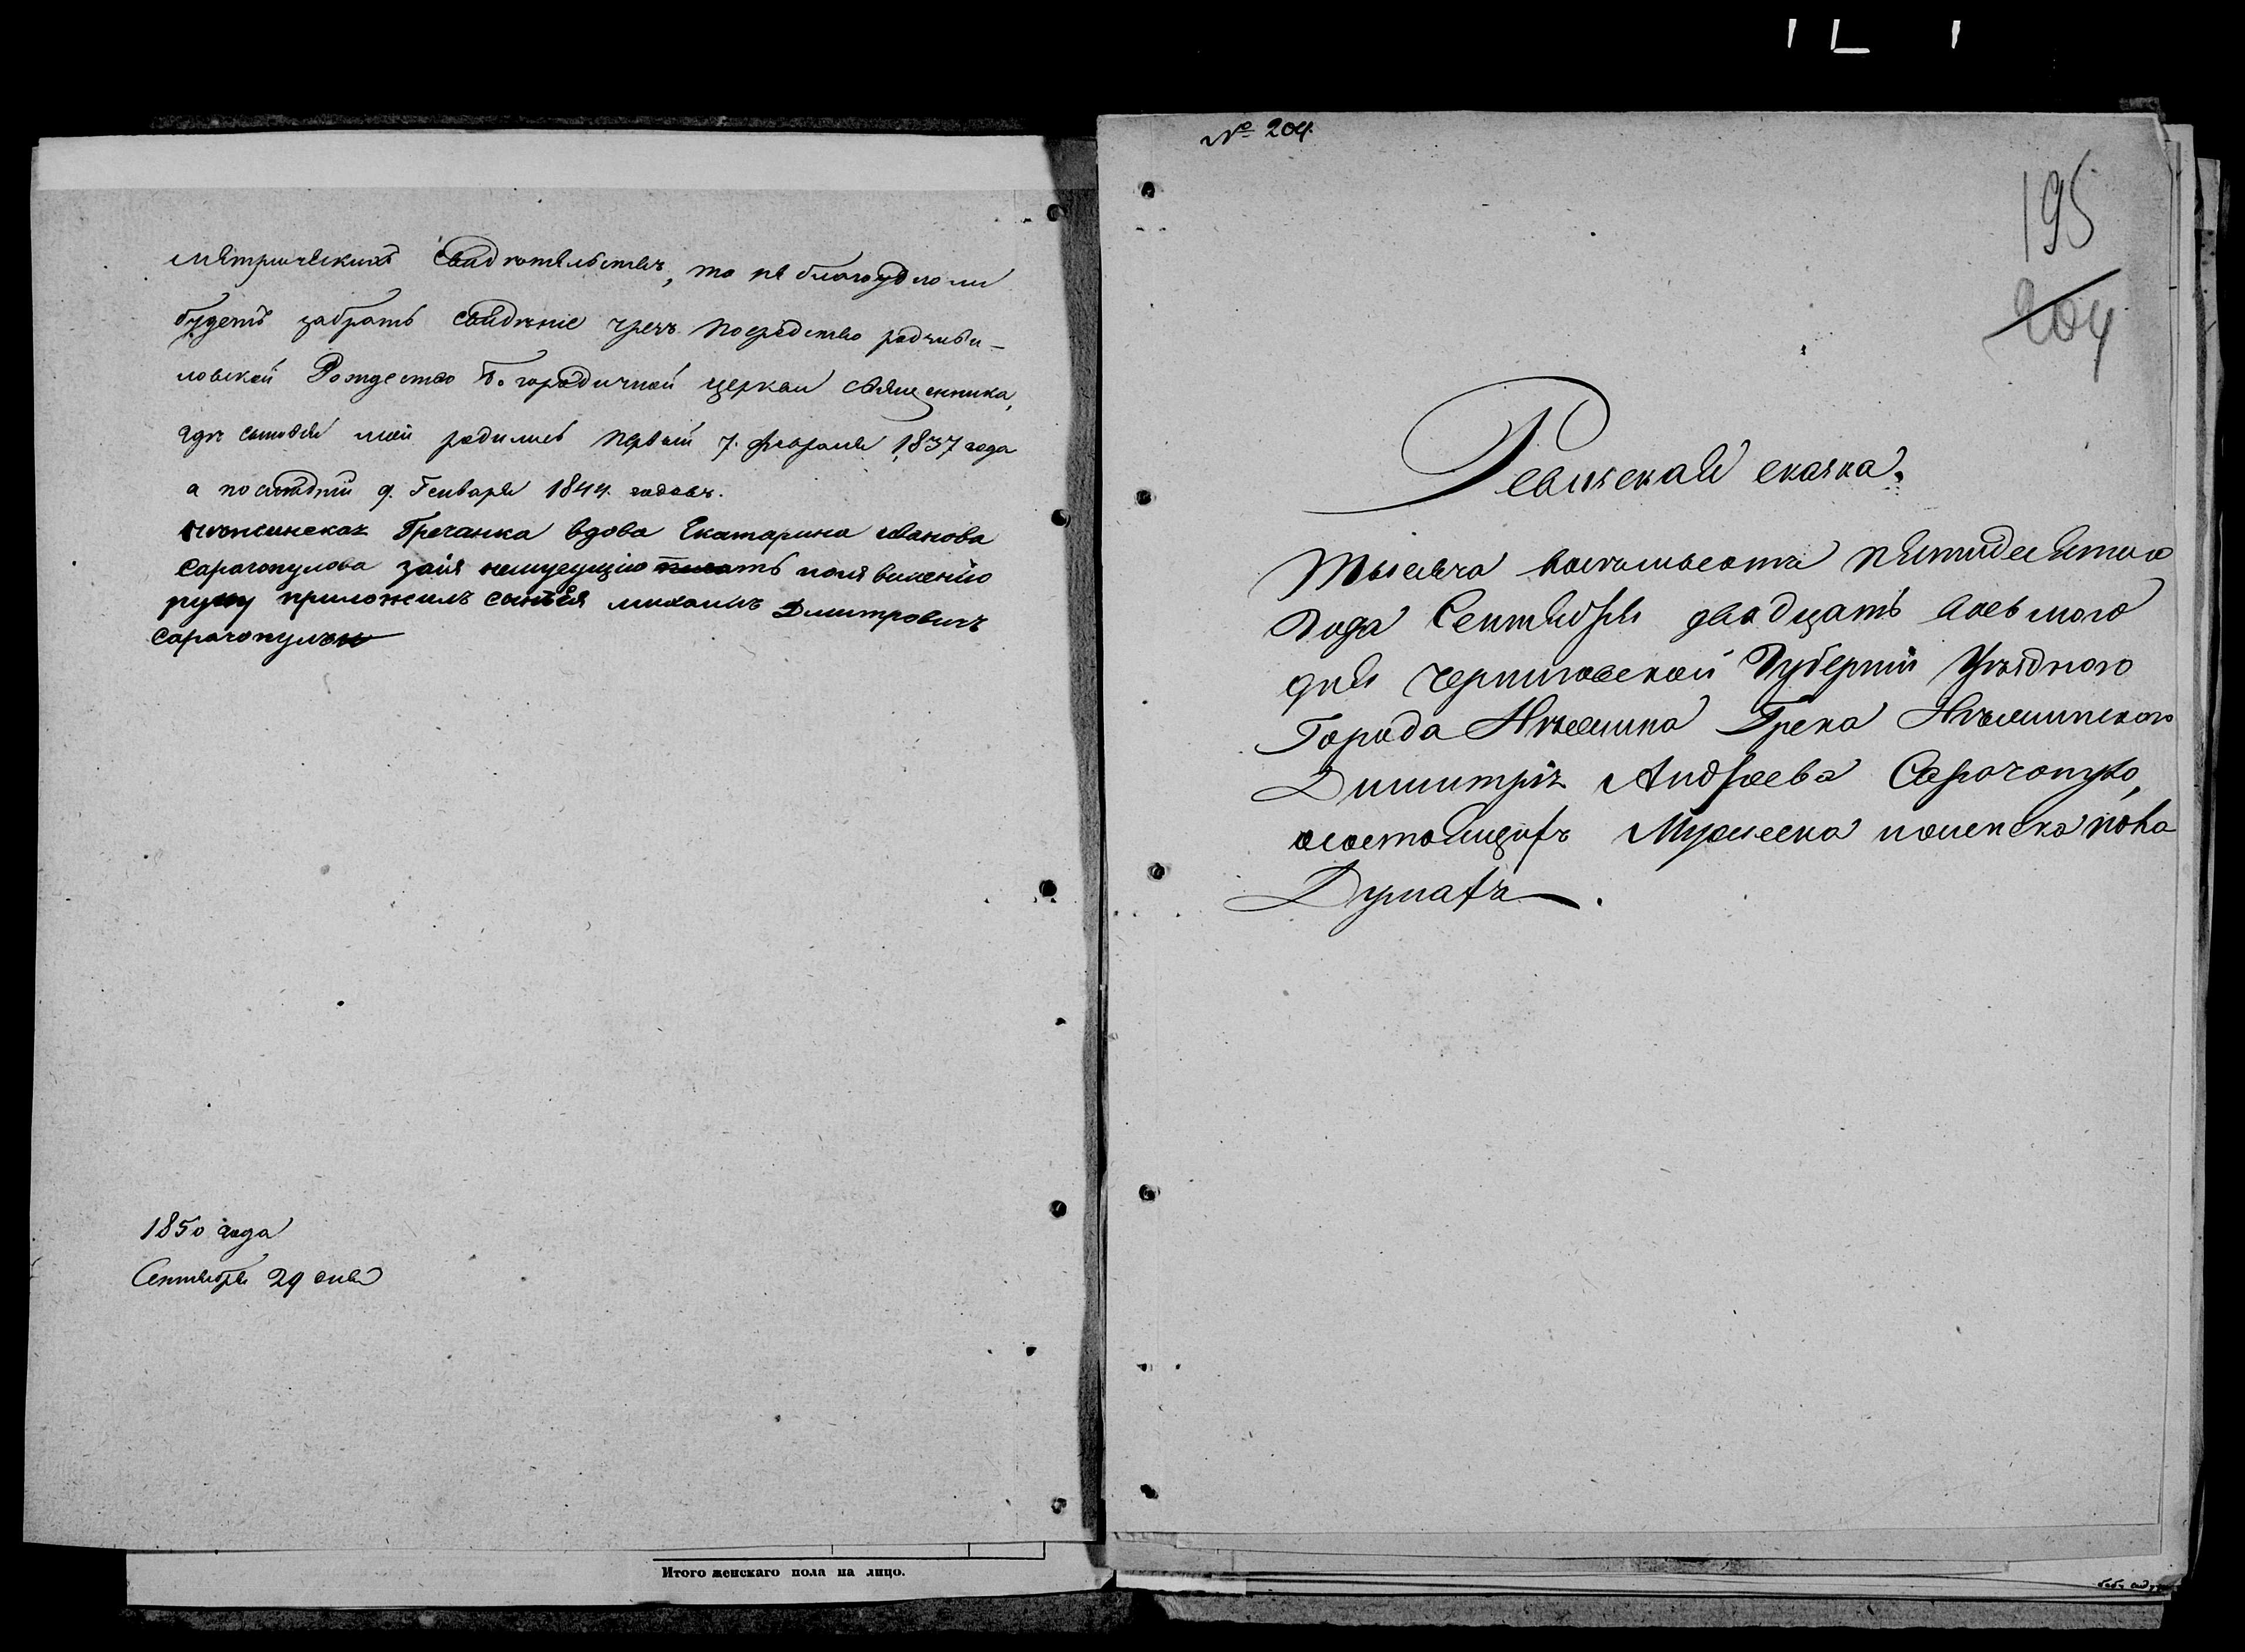 метрическихъ свидѣтельствъ, то не благоугодно ли
будетъ забрать свидѣніе чрезъ посредство радзиви-
ловской Рождество Богородичной церкви священника,
гдѣ сыновья мои родились первый 7. февраля 1837 года
а последній 9. Генваря 1844. годовъ.
Нѣжинская Гречанка вдова Екатерина Иванова
Сарагопулова заня неимущую писать поея велению
руку приложилъ сынъ ея михаилъ Дмитровичъ
Сарагопуло
1850 года
Сентября 29 дня
Итого женскаго пола на лицо.
№ 204.
195
204
Ревизская сказка.
Тысяча восѣмьсотъ пятидесятого
Года Сентября двадцать восьмого
дня Черниговской Губерніи Уѣздного
Города Нѣжина Грека Нѣжинского
Димитрія Андреева Сарогопуло,
осостоящихъ Мужеска иженска пола
Душахъ.